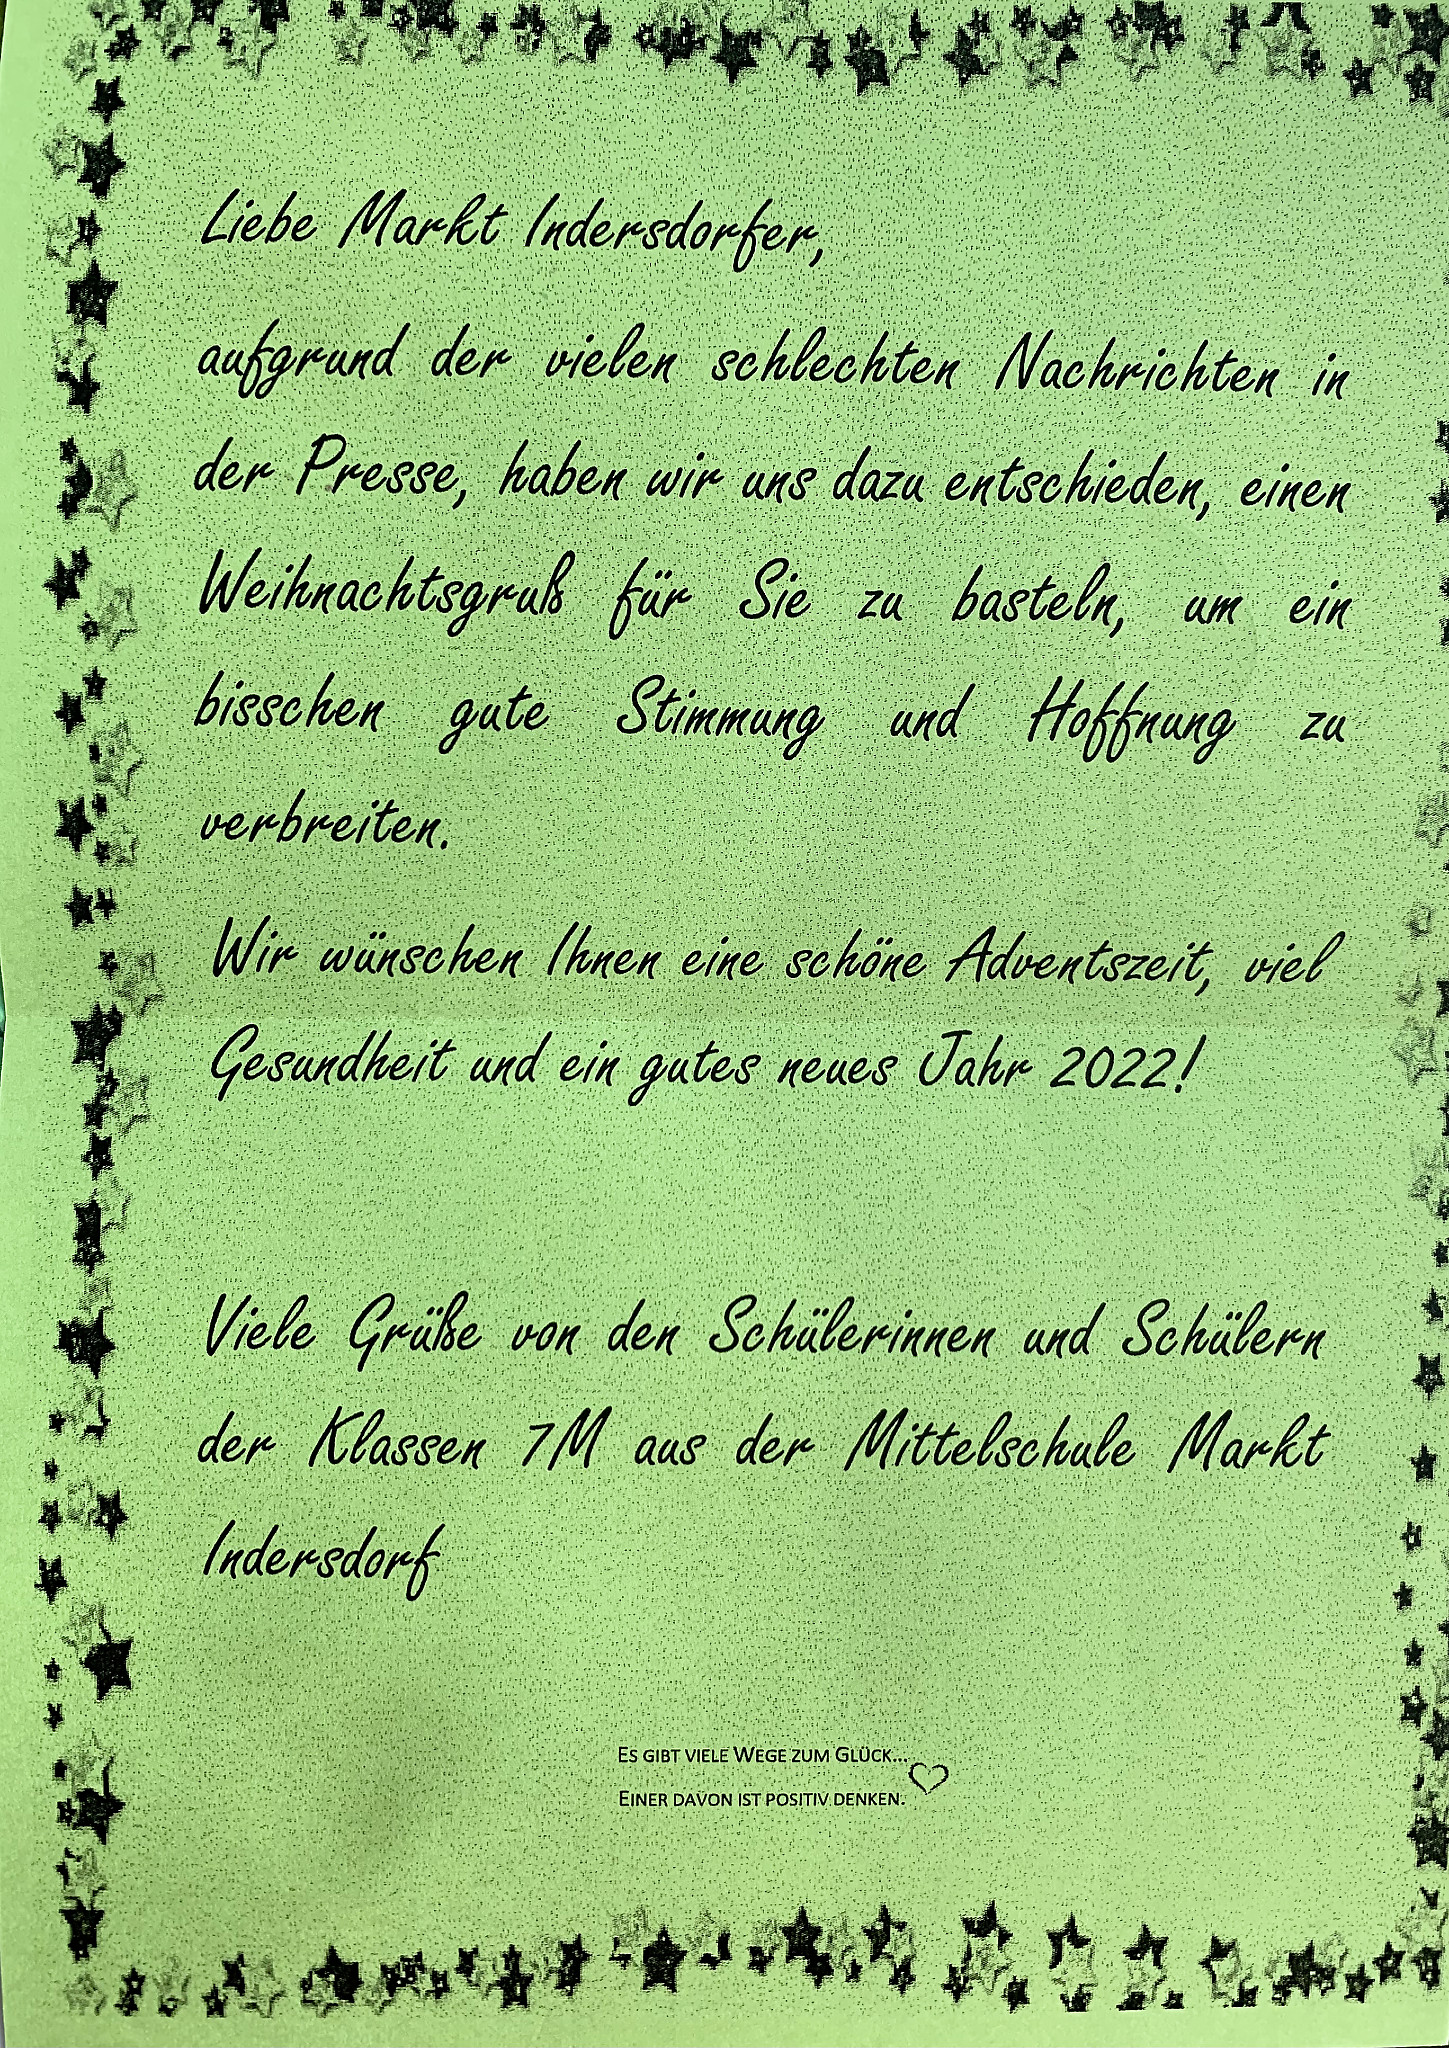 Liebe Markt Indersdorfer,
aufgrund der vielen schlechten Nachrichten in
der Presse, haben wir uns dazu entschieden, einen
Weihnachtsgruß für Sie zu basteln, um ein
bisschen gute Stimmung und Hoffnung zu
verbreiten.
Wir wünschen Ihnen eine schöne Adventszeit, viel
Gesundheit und ein gutes neues Jahr 2022!
Viele Grüße von den Schülerinnen und Schülern
der Klassen 7M aus der Mittelschule Markt
Indersdorf
ES GIBT VIELE WEGE ZUM GLÜCK...
EINER DAVON IST POSITIV DENKEN.